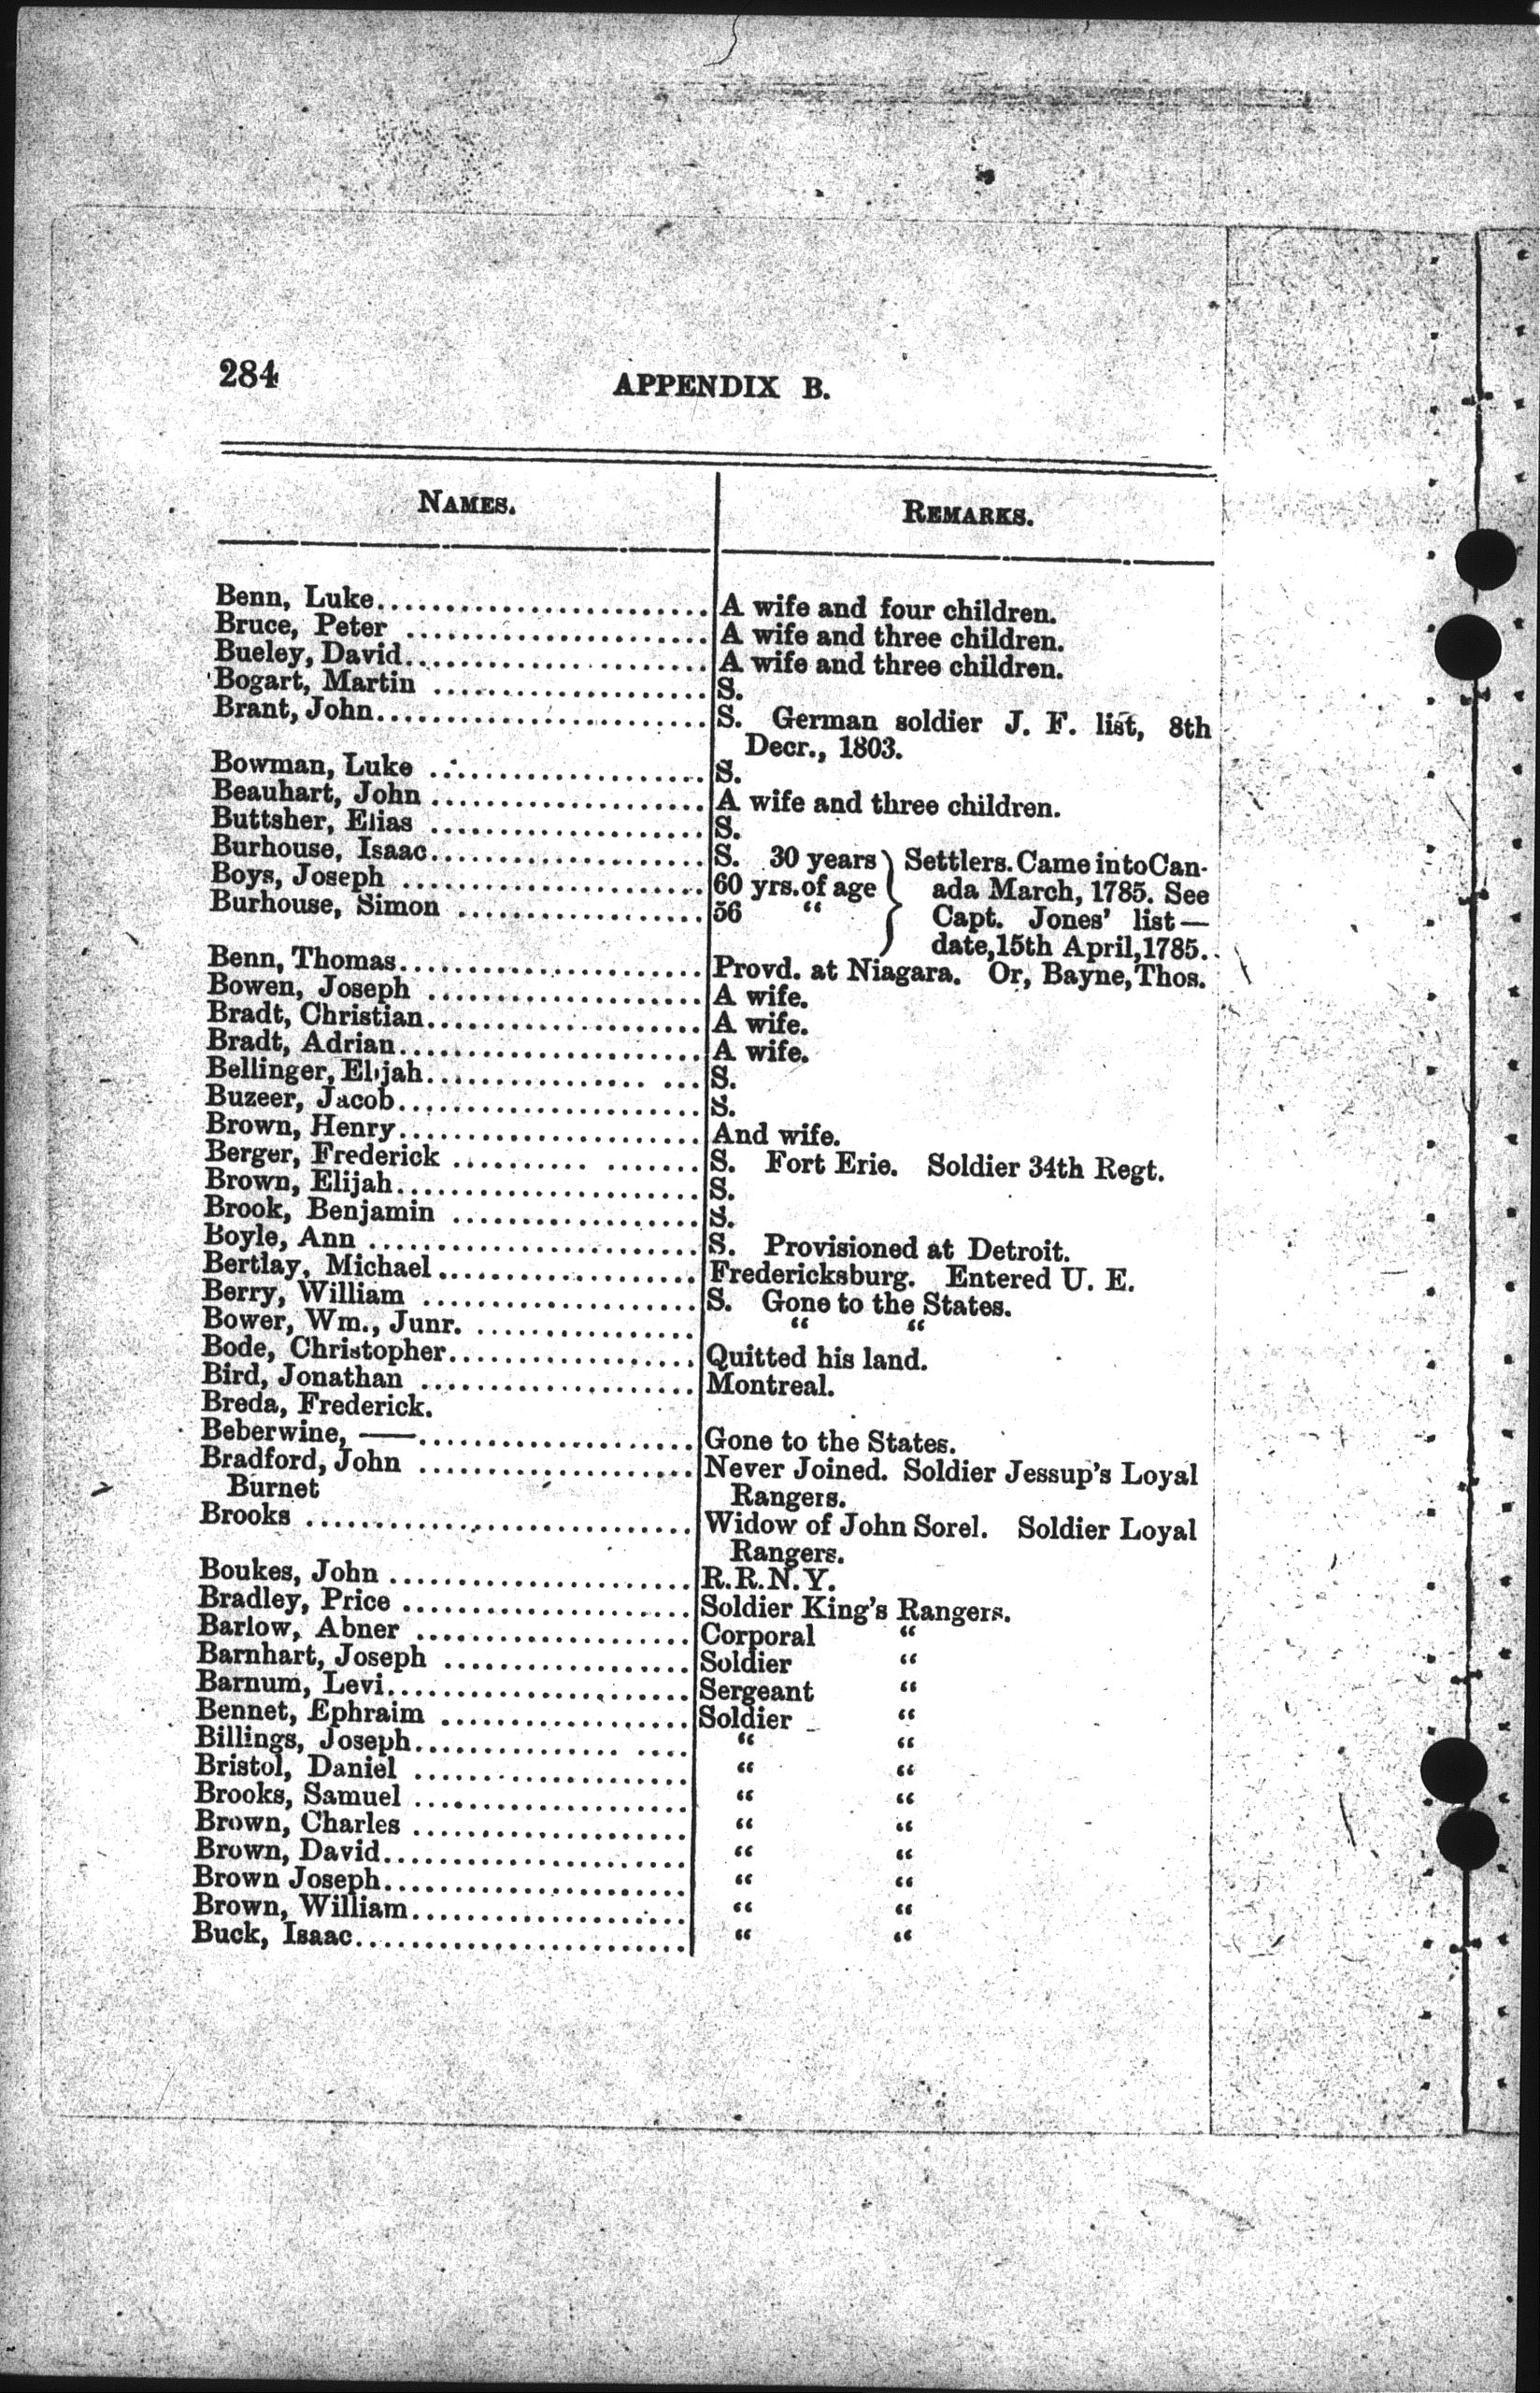 284
APPENDIX B.
NAMES.
REMARKS.
Benn, Luke........................A wife and four children.
Bruce, Peter ......................A wife and three children.
Bueley, David......................A wife and three children.
Bogart, Martin ....................S.
Brant, John........................S. German soldier J. F. list, 8th
Decr., 1803.
Bowman, Luke ....................S.
Beauhart, John ....................A wife and three children.
Buttsher, Elias ....................S.
Burhouse, Isaac....................S. 30 years } Settlers. Came into Can-
Boys, Joseph ......................60 yrs. of age ada March, 1785. See
Burhouse, Simon ..................56 “ Capt. Jones' list—
date, 15th April, 1785.
Benn, Thomas......................Provd. at Niagara. Or, Bayne, Thos.
Bowen, Joseph ....................A wife.
Bradt, Christian....................A wife.
Bradt, Adrian......................A wife.
Bellinger, Elijah................ ...S.
Buzeer, Jacob......................S.
Brown, Henry......................And wife.
Berger, Frederick .......... .......S. Fort Erie. Soldier 34th Regt.
Brown, Elijah......................S.
Brook, Benjamin ..................S.
Boyle, Ann ........................S. Provisioned at Detroit.
Bertlay, Michael...................Fredericksburg. Entered U. E.
Berry, William ....................S. Gone to the States.
Bower, Wm., Junr. ................ “ “
Bode, Christopher..................Quitted his land.
Bird, Jonathan ....................Montreal.
Breda, Frederick.
Beberwine, ——....................Gone to the States.
Bradford, John ....................Never Joined. Soldier Jessup's Loyal
Burnet Rangers.
Brooks ............................Widow of John Sorel. Soldier Loyal
Rangers.
Boukes, John ......................R.R.N.Y.
Bradley, Price .....................Soldier King's Rangers.
Barlow, Abner ....................Corporal “
Barnhart, Joseph ..................Soldier “
Barnum, Levi......................Sergeant “
Bennet, Ephraim ..................Soldier “
Billings, Joseph............... .... “ “
Bristol, Daniel .................... “ “
Brooks, Samuel .................... “ “
Brown, Charles .................... “ “
Brown, David...................... “ “
Brown Joseph...................... “ “
Brown, William.................... “ “
Buck, Isaac........................ “ “